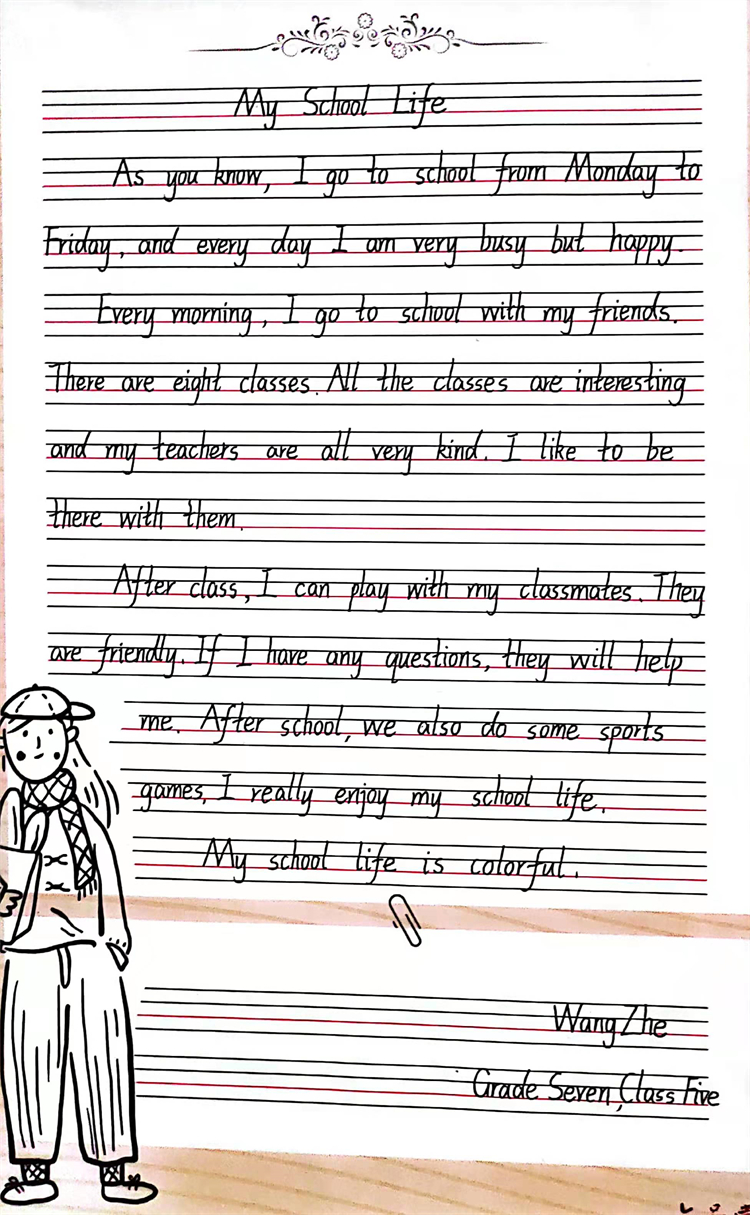 My School Life
As you know, I go to school from Monday to
Friday, and every day I am very busy but happy.
Every morning, I go to school with my friends.
There are eight classes. All the classes are interesting
and my teachers are all very kind. I like to be
there with them.
After class, I can play with my classmates. They
are friendly. If I have any questions, they will help
me. After school, we also do some sports
games, I really enjoy my school life.
My school life is colorful.
Wang Zhe
Grade Seven, Class Five